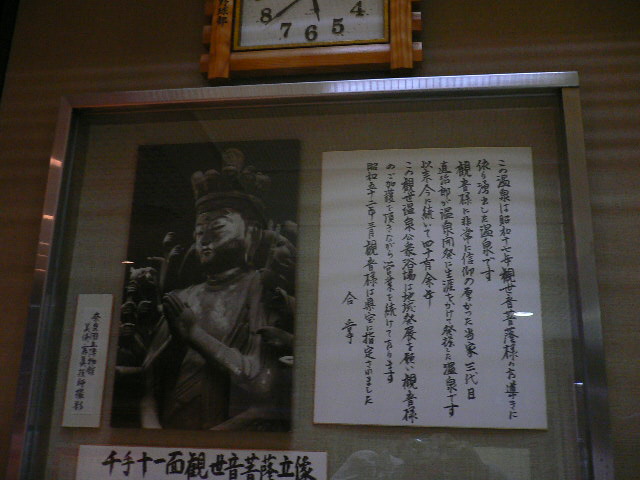 8 7 6 5 4
この温泉は昭和十七年観世音菩薩様のお導きに
依り湧出した温泉です
観音様に非常に信仰の厚かった当家三代目
直治郎が温泉開発に生涯をかけ発掘した温泉です
以来今に続いて四十有余年
この観世温泉公衆浴場は地域発展を願い観音様
のご加護を頂きながら営業を続けております
昭和五十二年三月観音様は県宝に指定されました
合掌
奈良国立博物館
千手十一面観世音菩薩立像